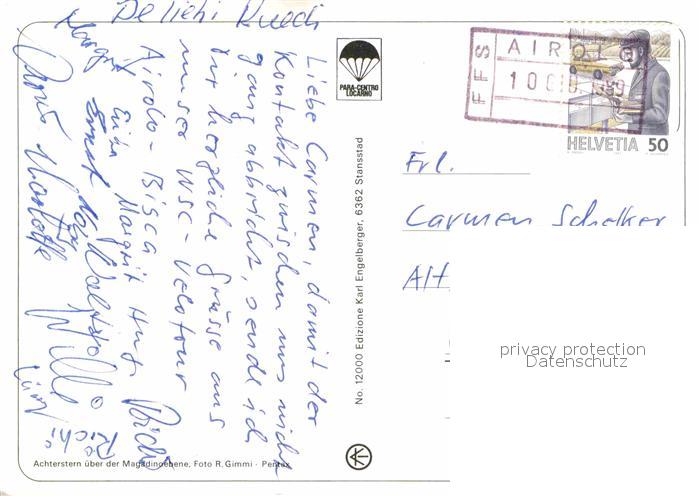 Liebe Carmen, damit der
Kontakt zwischen uns nicht
ganz abbricht, sende ich
Dir herzliche Grüsse aus
unser WSC-Velotour
Airolo - Biasca
De liebi Ruedi
Margrit
Ernst
Margrit Hug
Willi
Richi
PARA-CENTRO
LOCARNO
No. 12000 Edizione Karl Engelberger, 6362 Stansstad
FFS
AIROLO
HELVETIA 50
Frl.
Carmen Schelker
Alt
privacy protection
Datenschutz
Achterstern über der Magadinoebene, Foto R. Gimmi - Pentax